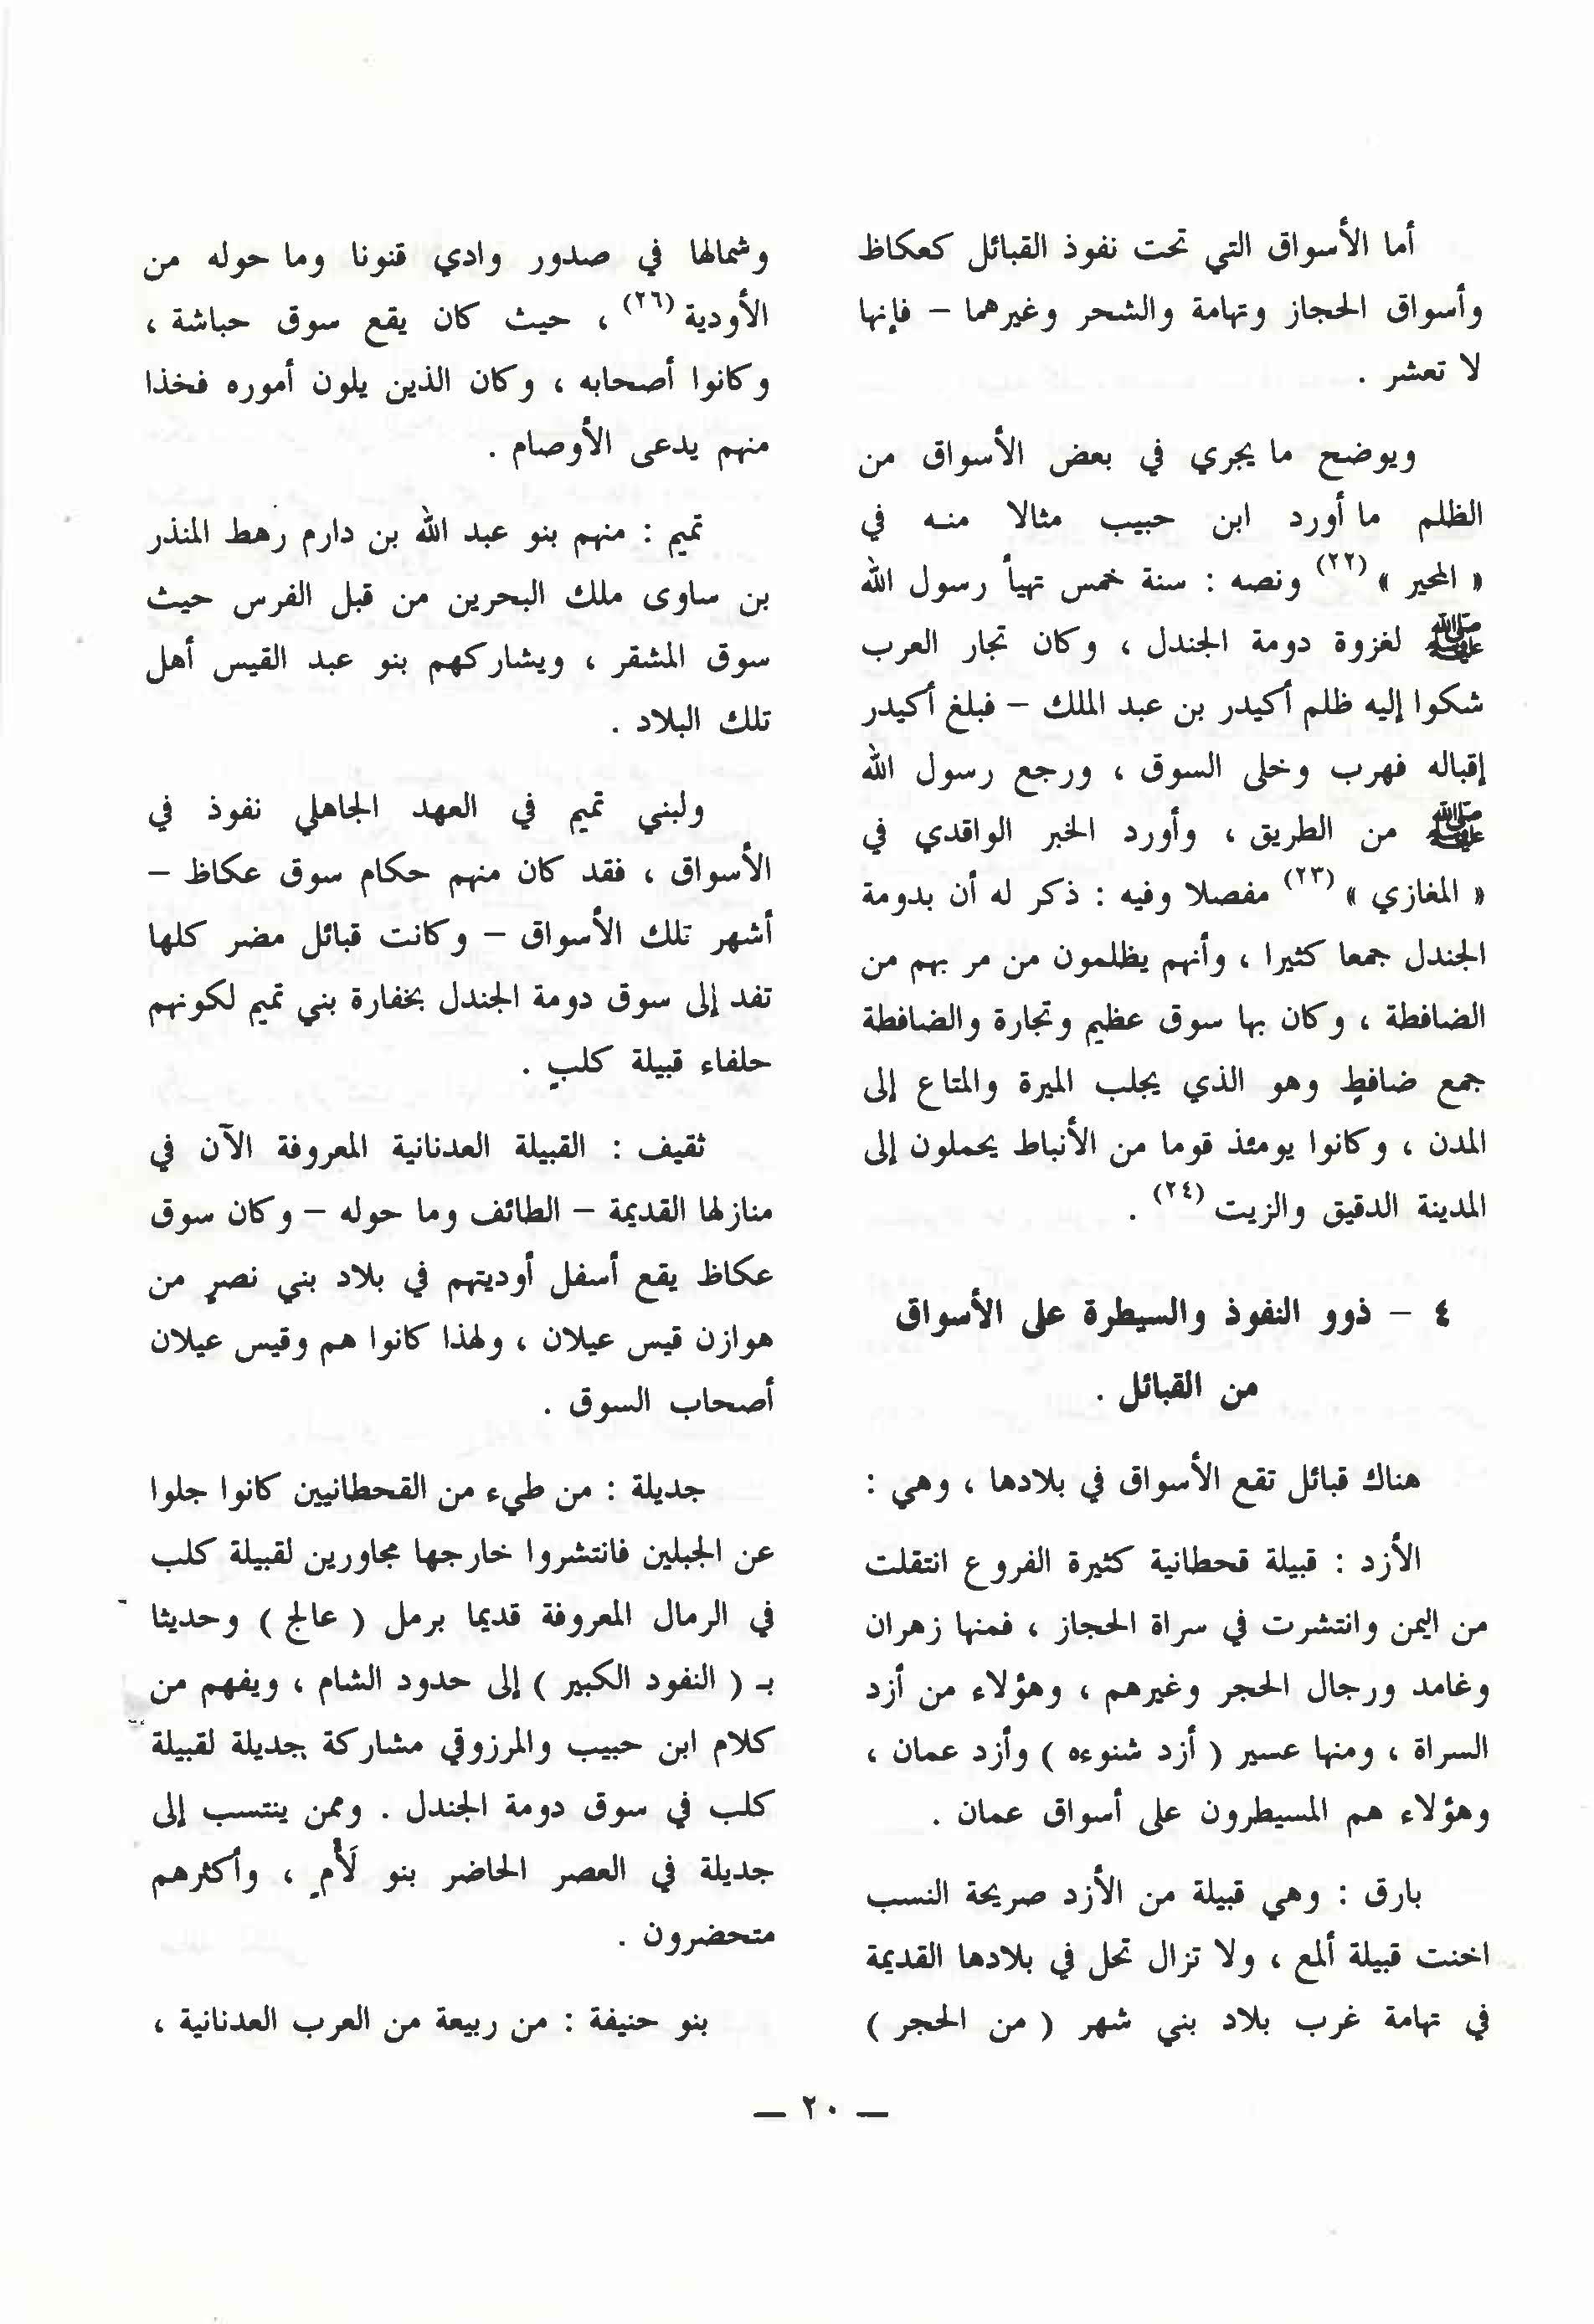 أما الأسواق التي تحت نفوذ القبائل كعكاظ
وأسواق الحجاز وتهامة والشحر وغيرهما – فإنها
لا تعشر .
ويوضح ما يجري في بعض الأسواق من
الظلم ما أورد ابن حبيب مثالا منه في
« المحبر » (٢٢) ونصه : سنة خمس تهيأ رسول الله
ﷺ لغزوة دومة الجندل ، وكان تجار العرب
شكوا إليه ظلم أكيدر بن عبد الملك – فبلغ أكيدر
إقباله فهرب وخلى السوق ، ورجع رسول الله
ﷺ من الطريق ، وأورد الخبر الواقدي في
« المغازي » (٢٣) مفصلا وفيه : ذكر له أن بدومة
الجندل جمعا كثيرا ، وأنهم يظلمون من مر بهم من
الضافطة ، وكان بها سوق عظيم وتجارة والضافطة
جمع ضافطٍ وهو الذي يجلب الميرة والمتاع إلى
المدن ، وكانوا يومئذ قوما من الأنباط يحملون إلى
المدينة الدقيق والزيت (٢٤) .
٤ – ذوو النفوذ والسيطرة على الأسواق
من القبائل .
هناك قبائل تقع الأسواق في بلادها ، وهي :
الأزد : قبيلة قحطانية كثيرة الفروع انتقلت
من اليمن وانتشرت في سراة الحجاز ، فمنها زهران
وغامد ورجال الحجر وغيرهم ، وهؤلاء من أزد
السراة ، ومنها عسير ( أزد شنوءه ) وأزد عمان ،
وهؤلاء هم المسيطرون على أسواق عمان .
بارق : وهي قبيلة من الأزد صريحة النسب
اخنت قبيلة ألمع ، ولا تزال تحل في بلادها القديمة
في تهامة غرب بلاد بني شهر ( من الحجر )
وشمالها في صدور وادي قنونا وما حوله من
الأودية (٢٦) ، حيث كان يقع سوق حباشة ،
وكانوا أصحابه ، وكان الذين يلون أموره فخذا
منهم يدعى الأوصام .
تميم : منهم بنو عبد الله بن دارم رهط المنذر
بن ساوى ملك البحرين من قبل الفرس حيث
سوق المشقر ، ويشاركهم بنو عبد القيس أهل
تلك البلاد .
ولبني تميم في العهد الجاهلي نفوذ في
الأسواق ، فقد كان منهم حكام سوق عكاظ –
أشهر تلك الأسواق – وكانت قبائل مضر كلها
تفد إلى سوق دومة الجندل بخفارة بني تميم لكونهم
حلفاء قبيلة كلبٍ .
ثقيف : القبيلة العدنانية المعروفة الآن في
منازلها القديمة – الطائف وما حوله – وكان سوق
عكاظ يقع أسفل أوديتهم في بلاد بني نصرٍ من
هوازن قيس عيلان ، ولهذا كانوا هم وقيس عيلان
أصحاب السوق .
جديلة : من طيء من القحطانيين كانوا جلوا
عن الجبلين فانتشروا خارجها مجاورين لقبيلة كلب
في الرمال المعروفة قديما برمل ( عالج ) وحديثا
بـ ( النفود الكبير ) إلى حدود الشام ، ويفهم من
كلام ابن حبيب والمرزوقي مشاركة جديلة لقبيلة
كلب في سوق دومة الجندل . وممن ينتسب إلى
جديلة في العصر الحاضر بنو لَأْمٍ ، وأكثرهم
متحضرون .
بنو حنيفة : من ربيعة من العرب العدنانية ،
— ٢٠ —